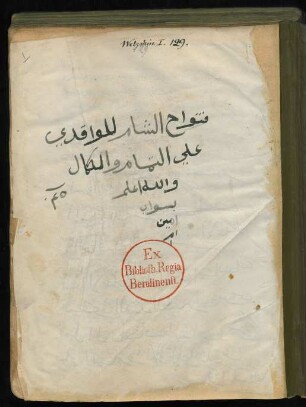 Wetzstein I. 129.
فتواح الشام للواقدي
علي التمام والكمال
والله اعلم
بصواب
امين
Ex
Biblioth. Regia
Berolinensi.